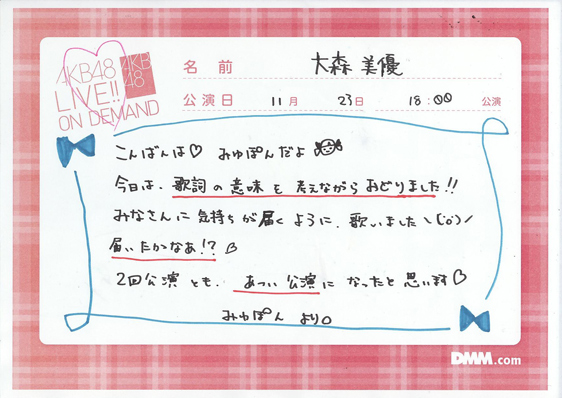 AKB48
LIVE!!
ON DEMAND
AKB
48
名前 大森美優
公演日 11月 23日 18:00 公演
こんばんは♡ みゅぽんだよ
今日は、歌詞の意味を考えながらおどりました!!
みなさんに気持ちが届くように、歌いました\(´ο`)/
届いたかなあ!? ♡
2回公演とも、あつい公演になったと思います♡
みゅぽんより。
DMM.com